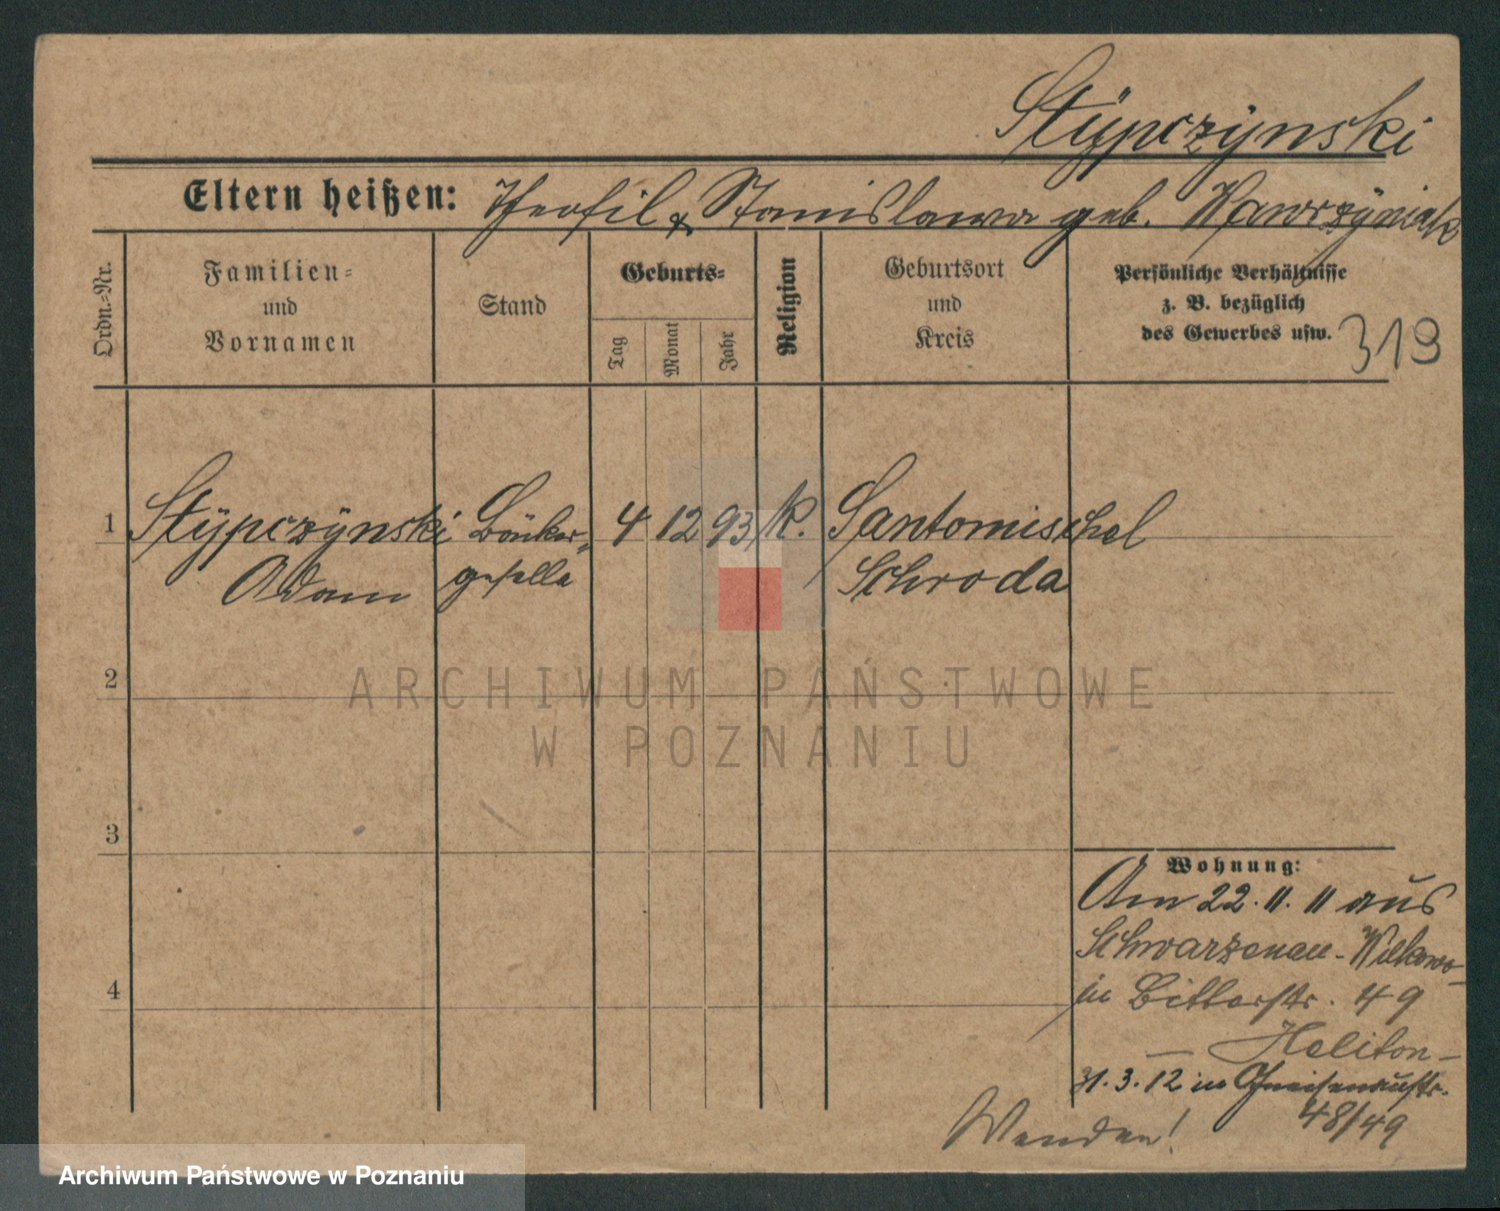 Stÿpczÿnski
Eltern heißen: Theofil & Stanislawa geb. Wawrzÿniak
Ordn.-Nr.
Familien-
und
Vornamen
Stand
Geburts-
Tag
Monat
Jahr
Religion
Geburtsort
und
Kreis
Persönliche Verhältnisse
z. B. bezüglich
des Gewerbes usw.
319
1 Stÿpczÿnski Bäcker- 4 12 93 k. Santomischel
Adam geselle Schroda
2
3
4
Wohnung:
Am 22. 11. 11 aus
Schwarzenau - Wilkowo
in Bitterstr. 49
31. 3. 12 in Gneisenaustr.
48/49
Wenden!
ARCHIWUM PAŃSTWOWE
W POZNANIU
Archiwum Państwowe w Poznaniu